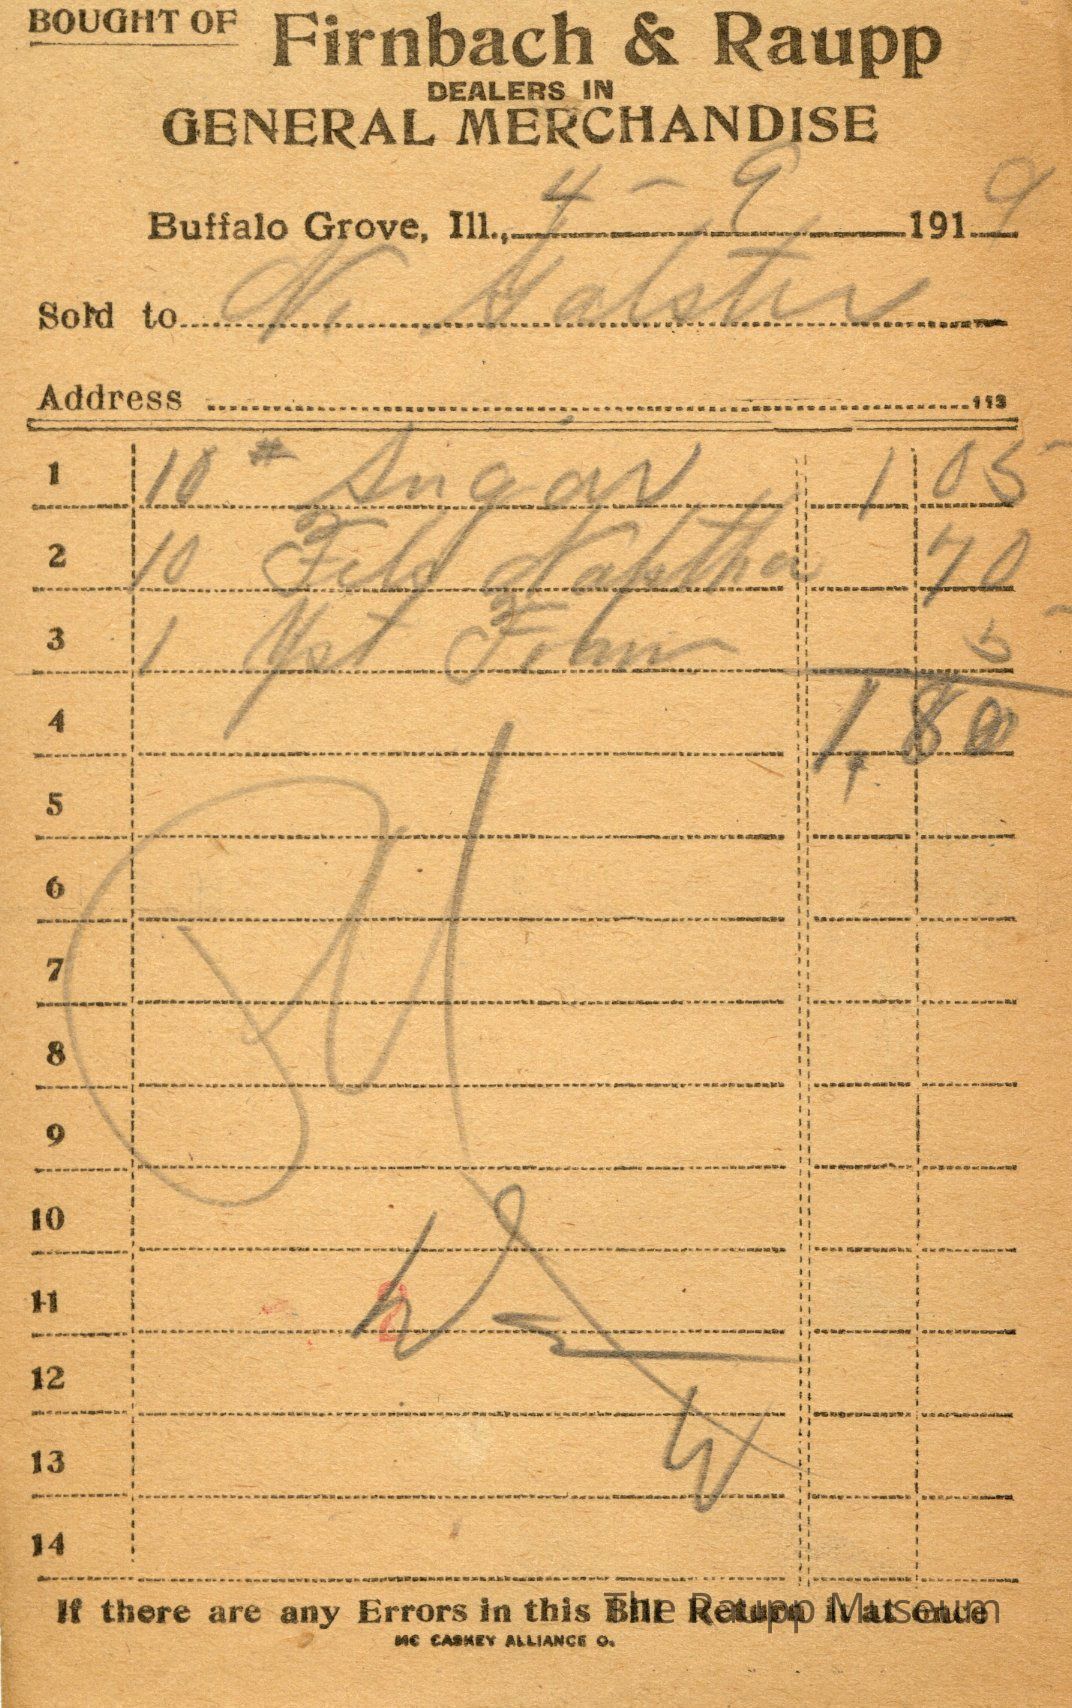 BOUGHT OF Firnbach & Raupp
DEALERS IN
GENERAL MERCHANDISE
Buffalo Grove, Ill., 4 - 9 1919
Sold to N. Galster
Address 113
1 10 # Sugar 1 05
2 10 Fels Naptha 70
3 1 Yst Foam 5
4 1,80
5
6
7
8
9
10
11 2
12
13
14
If there are any Errors in this Bill Return it at once
The Raupp Museum
MC CASKEY ALLIANCE O.